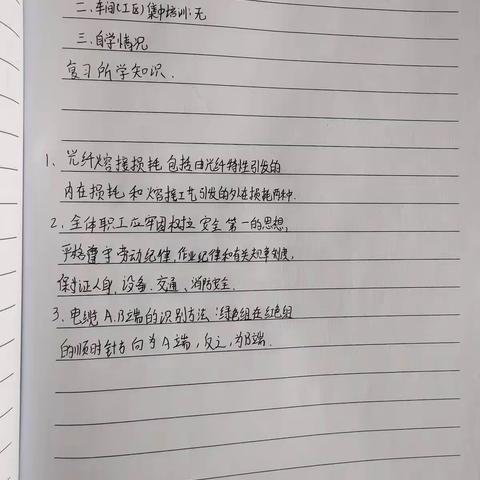 二、车间(工区)集中培训:无
三、自学情况
复习所学知识.
1、光纤熔接损耗包括由光纤特性引发的
内在损耗和熔接工艺引发的外在损耗两种.
2、全体职工应牢固树立安全第一的思想,
严格遵守劳动纪律,作业纪律和有关规章制度,
保持证人身、设备、交通、消防安全.
3、电缆A.B端的识别方法:绿色组在红色组
的顺时针方向为A端,反之,为B端.